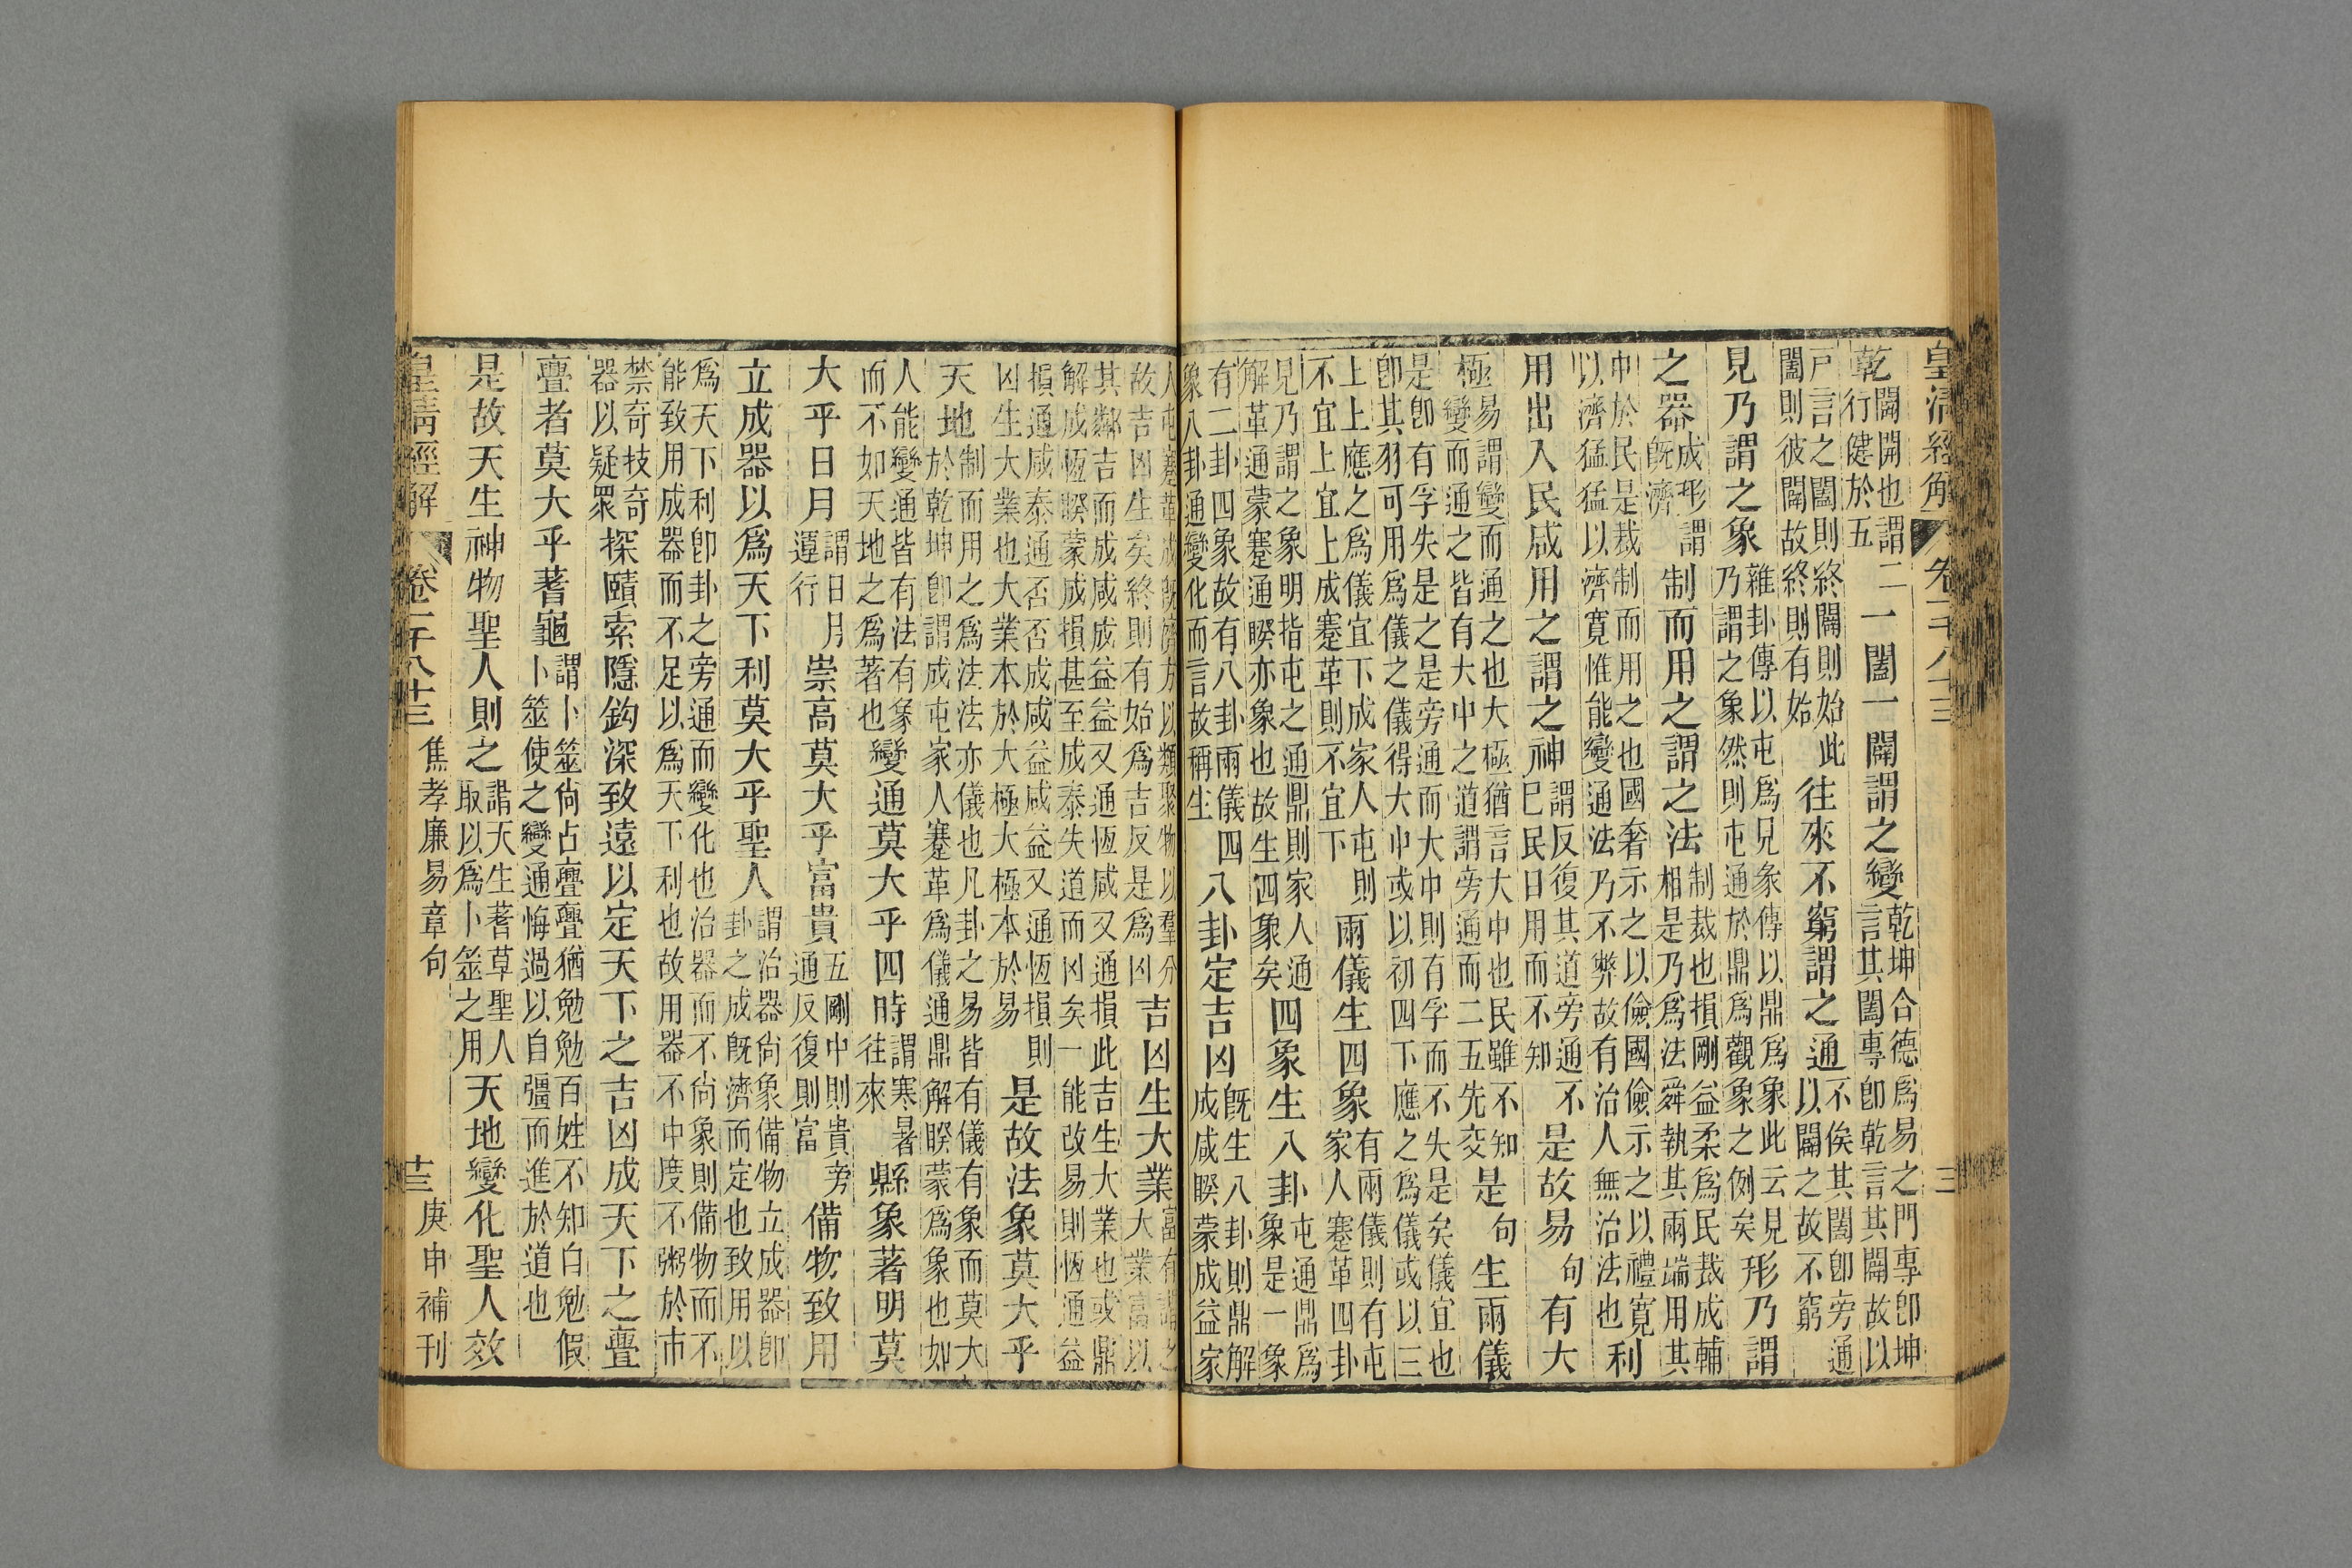 皇清經解 卷一千八十三 三
乾闢開也謂行健於五二一闔一闢謂之變乾坤合德爲易之門專卽坤言其闔專卽乾言其闢故以
戸言之闔則終闢則始此闔則彼闢故終則有始往來不窮謂之通不俟其闔卽旁通以闢之故不窮
見乃謂之象雜卦傳以屯爲見彖傳以鼎爲象此云見乃謂之象然則屯通於鼎爲觀象之例矣形乃謂
之器成形謂旣濟制而用之謂之法制裁也損剛益柔爲民裁成輔相是乃爲法舜執其兩端用其
中於民是裁制而用之也國奢示之以儉國儉示之以禮寬以濟猛猛以濟寬惟能變通法乃不弊故有治人無治法也利
用出入民咸用之謂之神謂反復其道旁通不已民日用而不知是故易句有大
極易謂變而通之也大極猶言大中也民雖不知變而通之皆有大中之道謂旁通而二五先交是句生兩儀
是卽有孚失是之是旁通而大中則有孚而不失是矣儀宜也卽其羽可用爲儀之儀得大中或以初四下應之爲儀或以三
上上應之爲儀宜下成家人屯則不宜上宜上成蹇革則不宜下兩儀生四象有兩儀則有屯家人蹇革四卦
見乃謂之象明指屯之通鼎則家人通解革通蒙蹇通睽亦象也故生四象矣四象生八卦屯通鼎爲象是一象
有二卦四象故有八卦兩儀四象八卦通變化而言故稱生八卦定吉凶旣生八卦則鼎解成咸睽蒙成益家
人屯蹇革成旣濟方以類聚物以羣分故吉凶生矣終則有始爲吉反是爲凶吉凶生大業富有謂之大業富以
其鄰吉而成咸成益益又通恆咸又通損此吉生大業也或鼎解成恆睽蒙成損甚至成泰失道而凶矣一能改易則恆通益
損通咸泰通否否成咸益咸益又通恆損則凶生大業也大業本於大極大極本於易是故法象莫大乎
天地制而用之爲法法亦儀也凡卦之易皆有儀有象而莫大於乾坤卽謂成屯家人蹇革爲儀通鼎解睽蒙爲象也如
人能變通皆有法有象而不如天地之爲著也變通莫大乎四時謂寒暑往來縣象著明莫
大乎日月謂日月運行崇高莫大乎富貴五剛中則貴旁通反復則富備物致用
立成器以爲天下利莫大乎聖人謂治器尙象備物立成器卽卦之成旣濟而定也致用以
爲天下利卽卦之旁通而變化也治器而不尙象則備物而不能致用成器而不足以爲天下利也故用器不中度不粥於市
禁奇技奇器以疑眾探賾索隱鈎深致遠以定天下之吉凶成天下之亹
亹者莫大乎蓍龜謂卜筮尙占亹亹猶勉勉百姓不知自勉假卜筮使之變通悔過以自彊而進於道也
是故天生神物聖人則之謂天生蓍草聖人取以爲卜筮之用天地變化聖人效
皇清經解 卷一千八十三 焦孝廉易章句 十三 庚申補刊